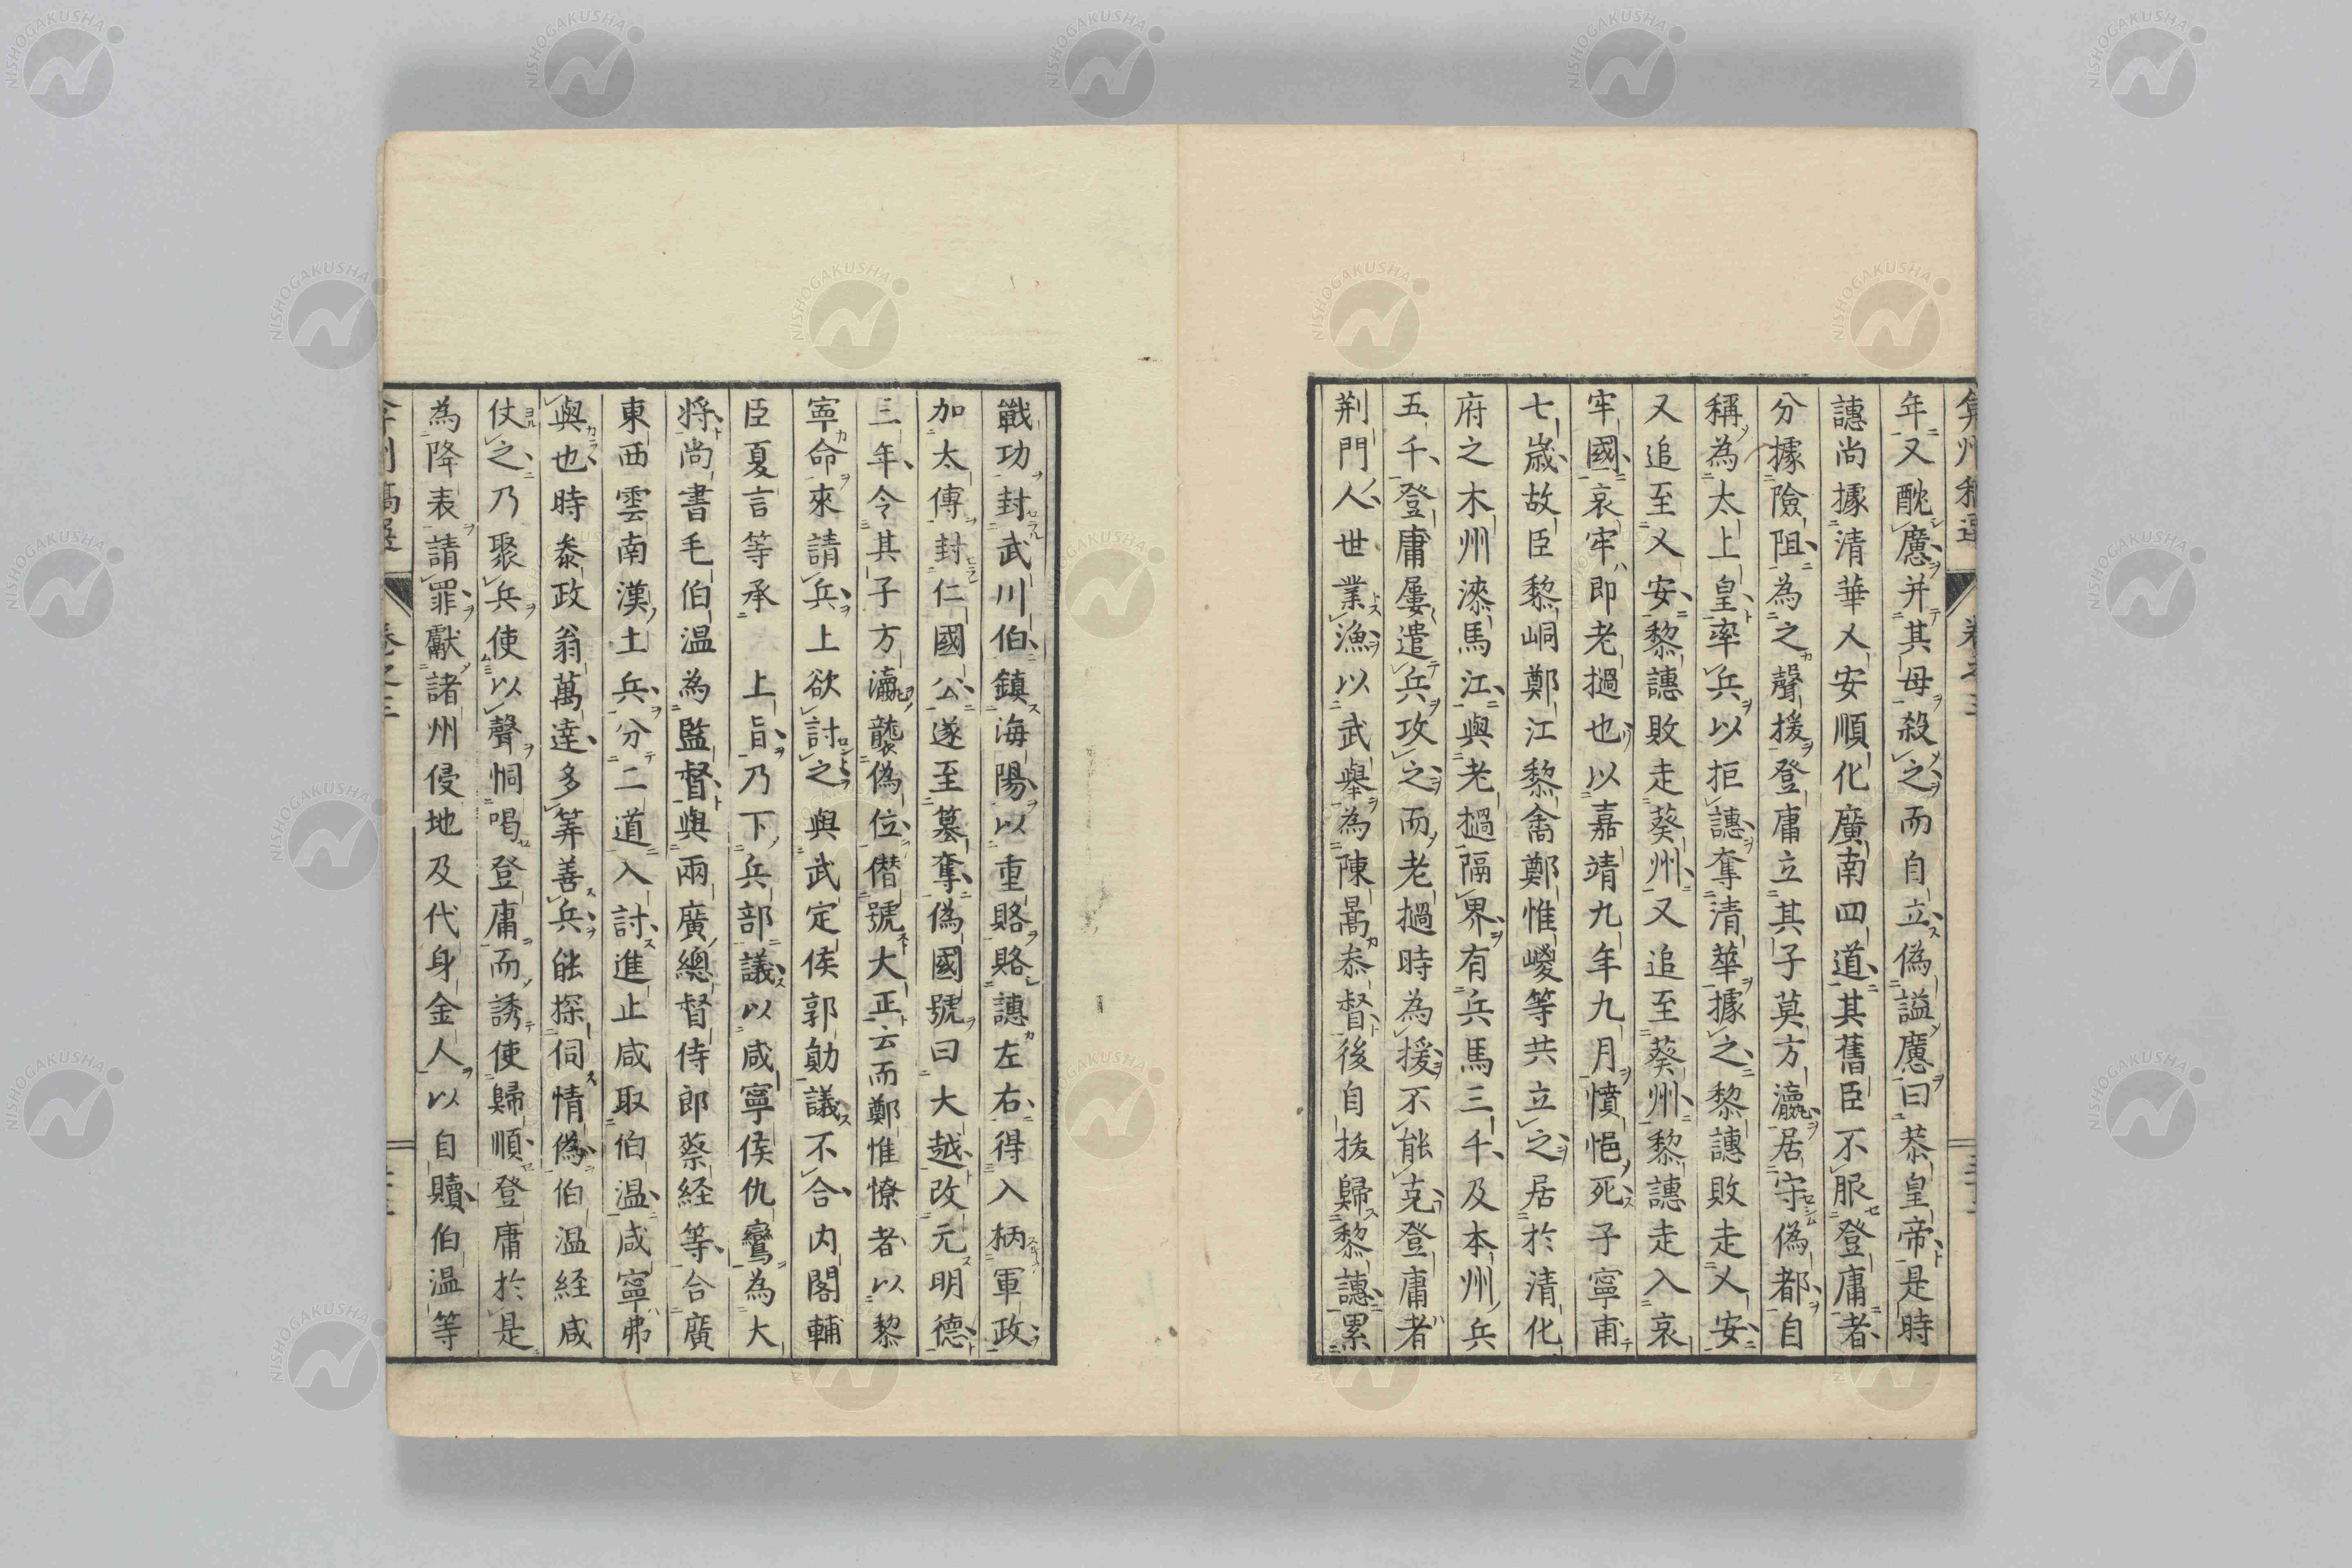 年又酖廌并其母殺之而自立偽諡廌曰恭皇帝是時
譓尚據清華乂安順化廣南四道其舊臣不服登庸者
分據險阻為之聲援登庸立其子莫方瀛居守偽都自
稱為太上皇率兵以拒譓奪清華據之黎譓敗走乂安
又追至乂安黎譓敗走葵州又追至葵州黎譓走入哀
牢國哀牢即老撾也以嘉靖九年九月憤悒死子寧甫
七歲故臣黎峒鄭江黎禽鄭惟㟲等共立之居於清化
府之木州漆馬江與老撾隔界有兵馬三千及本州兵
五千登庸屢遣兵攻之而老撾時為援不能克登庸者
荆門人世業漁以武舉為陳暠叅督後自拔歸黎譓累
戰功封武川伯鎮海陽以重賂賂譓左右得入柄軍政
加太傅封仁國公遂至篡奪偽國號曰大越改元明德
三年令其子方瀛襲偽位僣號大正云而鄭惟憭者以黎
寧命來請兵上欲討之與武定侯郭勛議不合内閣輔
臣夏言等承 上旨乃下兵部議以咸寧侯仇鸞為大
将尚書毛伯温為監督與兩廣總督侍郎蔡経等合廣
東西雲南漢土兵分二道入討進止咸取伯温咸寧弗
與也時叅政翁萬達多筭善兵能探伺情偽伯温経咸
仗之乃聚兵使以聲恫喝登庸而誘使歸順登庸於是
為降表請罪獻諸州侵地及代身金人以自贖伯温等